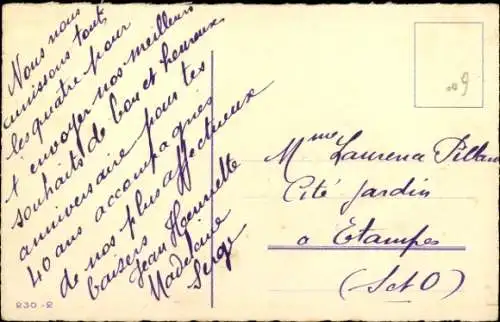 Nous nous
unissons tout
les quatre pour
t envoyer nos meilleurs
souhaits de bon et heureux
anniversaire pour tes
40 ans accompagnés
de nos plus affectueux
baisers Jean Henriette
Madeleine
Serge
230-2
009
Mme Laurence
Cité Jardin
a Etampes
(S et O)